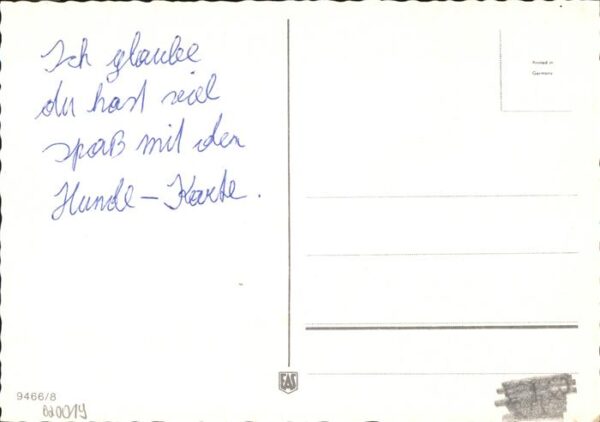 Ich glaube
du hast viel
spaß mit den
Hunde-Karte.
Printed in
Germany
EAS
9466/8